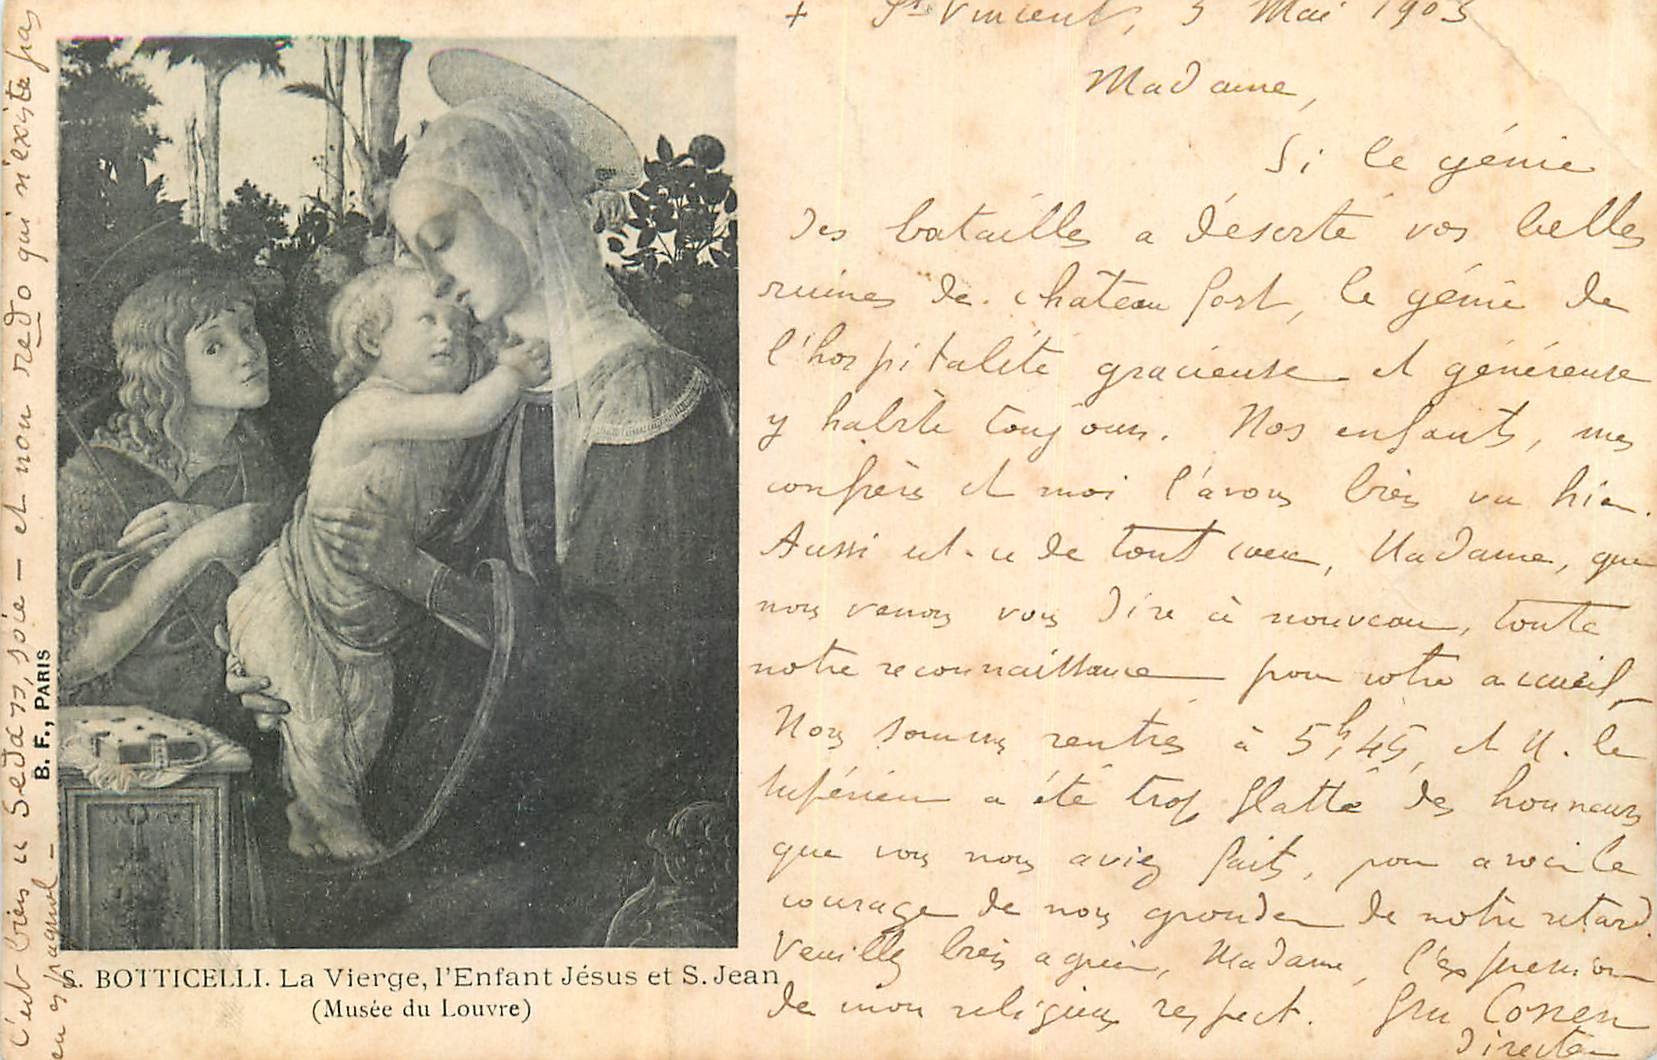 + St Vincent, 5 Mai 1903
Madame,
Si le génie
des batailles a déserté vos belles
ruines de château fort, le génie de
l'hospitalité gracieuse et généreuse
y habite toujours. Nos enfants, mes
confrères et moi l'avons bien vu hier.
Aussi est-ce de tout coeur, Madame, que
nous venons vous dire à nouveau, toute
notre reconnaissance pour votre accueil.
Nous sommes rentrés à 5h,45, et M. le
Supérieur a été trop flatté des honneurs
que vous nous aviez faits, pour avoir le
courage de nous gronder de notre retard.
Veuillez bien agréer, Madame, l'expression
de mon religieux respect.
Directeur
c'est bien u Sedan, soie — et non redo qui n'existe pas
en espagnol —
B. F., PARIS
S. BOTTICELLI. La Vierge, l'Enfant Jésus et S. Jean
(Musée du Louvre)